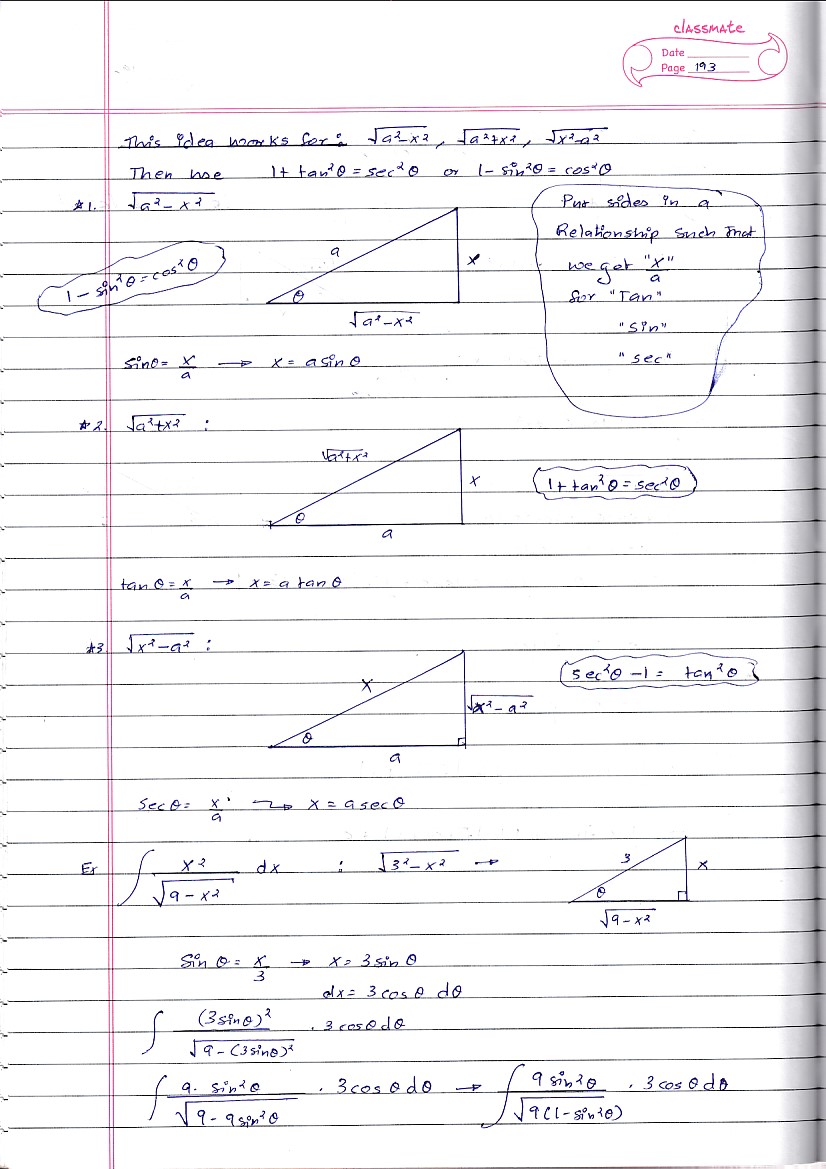 classmate
Date
Page 193
This idea works for: √a²-x² , √a²+x² , √x²-a²
Then use 1+tan²θ = sec²θ or 1-sin²θ = cos²θ
#1. √a²-x²
Put sides in a
Relationship such that
we got "x/a"
for "Tan"
"sin"
"sec"
1-sin²θ = cos²θ
a
x
θ
√a²-x²
sinθ = x/a → x = a sinθ
#2. √a²+x² :
√a²+x²
x
1+tan²θ = sec²θ
θ
a
tanθ = x/a → x = a tanθ
#3 √x²-a² :
x
sec²θ -1 = tan²θ
√x²-a²
θ
a
secθ = x/a → x = a secθ
Ex ∫ x²/√9-x² dx : √3²-x² →
3
x
θ
√9-x²
Sin θ = x/3 → x = 3 sin θ
dx = 3 cos θ dθ
∫ (3sinθ)²/√9-(3sinθ)² . 3 cosθ dθ
∫ 9. sin²θ/√9-9sin²θ . 3cos θ dθ → ∫ 9 sin²θ/√9(1-sin²θ) . 3 cos θ dθ